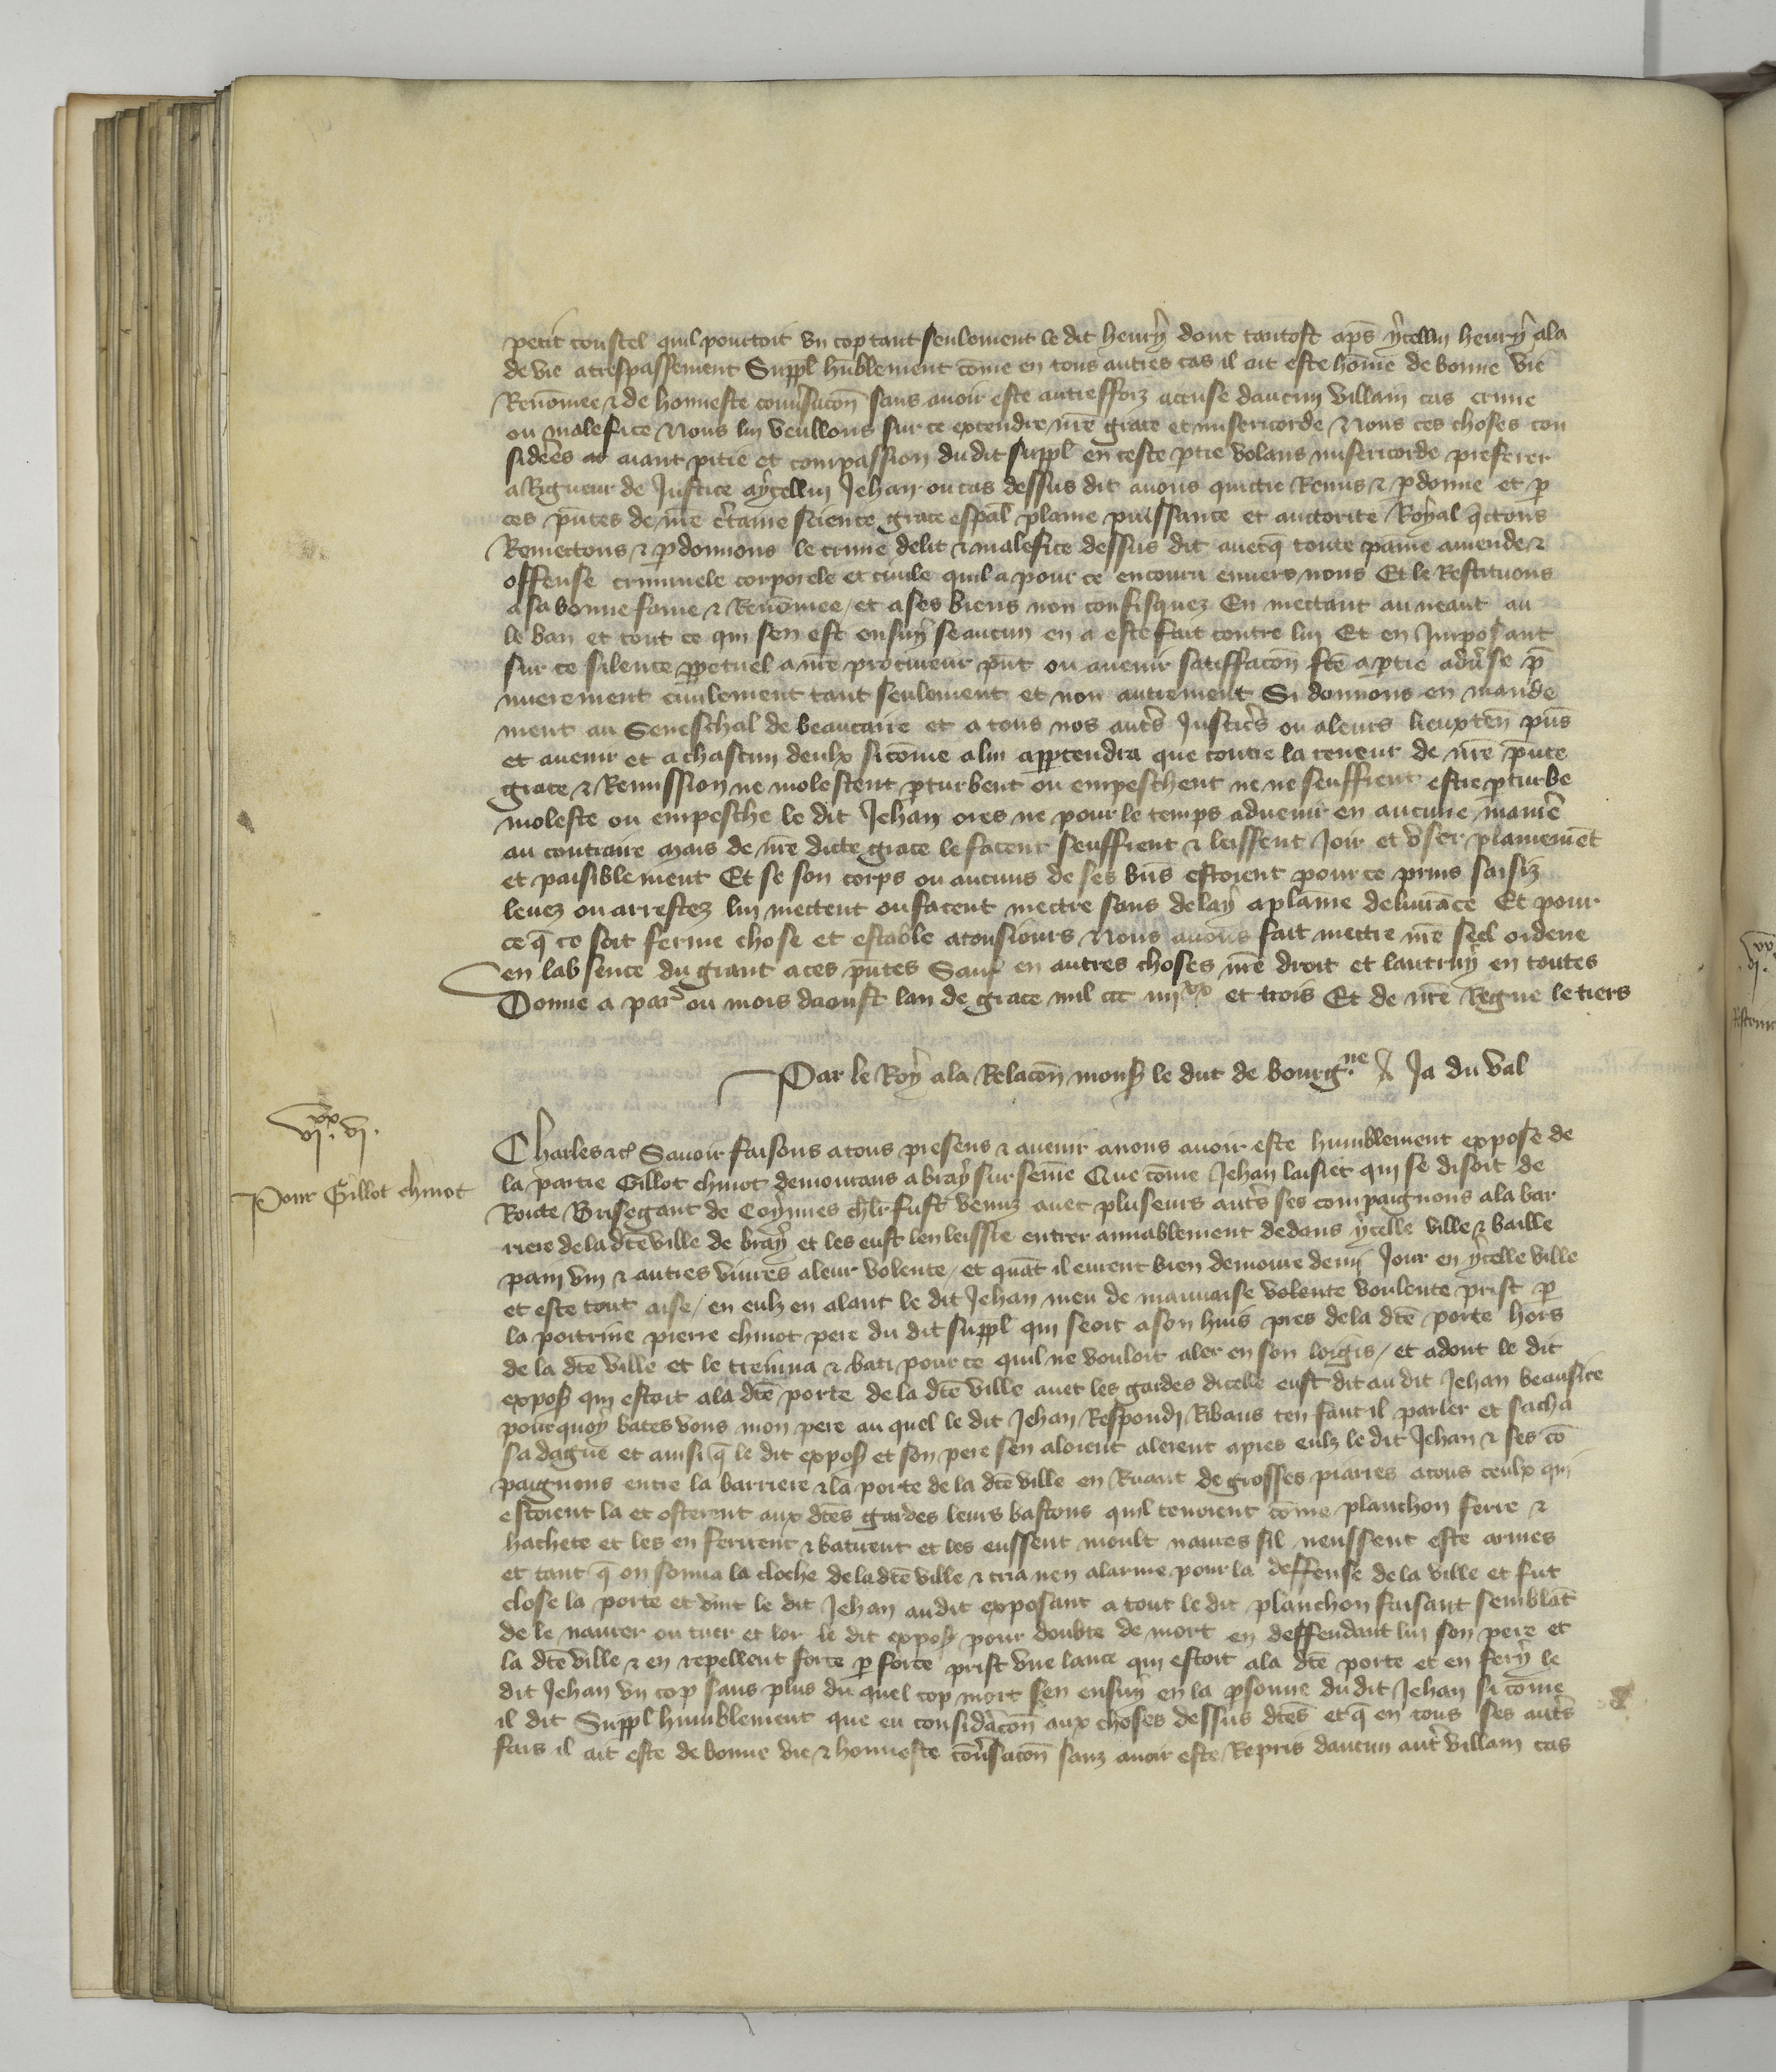 petit coustel quil pourtoit vn cop tant seulement le dit henrÿ dont tantost ap̃s ÿcelluj henrÿ ala
de vie a trespassement Suppl̃ hũblement cõme en tous autres cas il ait este hõme de bonne vie
Renõmee & de honneste conũsacõn sans auoir este autreffoiz accuse daucun villain cas crime
ou malefice Nous lui veullons sur ce extendre nr̃e grace et misericorde Nous ces choses con
siderẽs aiant pitie et compassion du dit suppl̃ en ceste ptie volans misericorde preferer
a Rigueur de Justice aÿcelluj Jehan ou cas dessus dit auons quictie Remis & pdonne et p
ces pñtes de nr̃e c̃taine science grace esp̃al plaine puissance et auctorite Royal q̃ctons
Remectons & pdonnons le crime delit & malefice dessus dit auecq̃ toute paine amende &
offense criminele corporele et ciuile quil a pour ce encouru enuers nous Et le Restituons
a sa bonne fame & Renõmee / et a ses biens non confisquez En mectant au neant au
le ban et tout ce qui sen est ensuÿ se aucun en a este fait contre lui Et en Jmposant
sur ce silence ppetuel a nr̃e procureur pñt ou auenir satiffacõn fc̃e a ptie adũse p̃
mierement ciuilement tant seulement et non autrement Si donnons en mande
ment au Seneschal de beaucaire et a tous nos autr̃s Justic̃rs ou a leurs lieuxteñ pñs
et auenir et a chascun deulx si cõme a lui apptendra que contre la teneur de nr̃e pñte
grace & Remission ne molestent pturbent ou empeschent ne ne seuffrent estre pturbe
moleste ou empesche le dit Jehan ores ne pour le temps aduenir en aucune manier̃e
au contraire mais de nr̃e dicte grace le facent seuffrent & leissent Joir et vser plainemẽt
et paisiblement Et se son corps ou aucuns de ses biñs estoient pour ce prins saisiz
leuez ou arrestez lui mectent ou facent mectre sans delaÿ a plaine deliurãce Et pour
ce q̃ ce soit ferme chose et estable a tousiours Nous auons fait mectre nr̃e seel ordene
en labsence du grant a ces pñtes Sauf en autres choses nr̃e droit et lautruÿ en toutes
Donne a par̃ ou mois daoust lan de grace mil ccc iiij xx et trois Et de nr̃e Regne le tiers
Par le Roÿ a la Relacõn monsʳ le duc de bourg.ne Ja du val
vi.xx vi.
Pour Gillot chmot
Charles &c̃ Sauoir faisons a tous presens & auenir a nous auoir este humblement expose de
la partie Gillot chmot demourans a braÿ sur seine Que cõme Jehan laisiet qui se disoit de
Route Brisegaut de Coÿmes chlr̃ fust venuz auec pluseurs autr̃s ses compaignons a la bar
riere de la dc̃e ville de braÿ et les eust len leissie entrer amiablement dedans ÿcelle ville & baille
pain vin & autres viures a leur volente / et quãt il eurent bien demoure demi Jour en ÿcelle ville
et este tout aise / en eulz en alant le dit Jehan meu de mauuaise volente voulente prist p
la poitrine pierre chmot pere du dit suppl̃ qui seoit a son huis pres de la dc̃e porte hors
de la dc̃e ville et le treinna & bati pour ce quil ne vouloit aler en son logis / et adont le dit
expos̃ qui estoit a la dc̃e porte de la dc̃e ville auec les gardes dicelle eust dit au dit Jehan beausire
pourquoy bates vous mon pere au quel le dit Jehan Respondj Ribaus ten faut il parler et sacha
sa dague et ainsi q̃ le dit expos̃ et son pere sen aloient alerent apres eulz le dit Jehan & ses cõ
paignons entre la barriere & la porte de la dc̃e ville en Ruant de grosses piarres a tous ceulx qui
estoient la et osterent aux dc̃es gardes leurs bastons quil tenoient cõme planchon ferre &
hachete et les en ferirent & batirent et les eussent moult naures sil neussent este armes
et tant q̃ on sonna la cloche de la dc̃e ville & cria nen alarme pour la deffense de la ville et fut
close la porte et vint le dit Jehan au dit exposant a tout le dit planchon faisant semblãt
de le naurer ou tuer et lor le dit expos̃ pour doubte de mort en deffendant lui son pere et
la dc̃e ville & en repellent force p force prist vne lance qui estoit a la dc̃e porte et en ferÿ le
dit Jehan vn cop sans plus du quel cop mort sen ensuÿ en la psonne du dit Jehan si cõme
il dit Suppl̃ humblement que eu considãcõn aux choses dessus dc̃es et q̃ en tous ses autr̃s
fais il ait este de bonne vie & honneste cõũsacõn sanz auoir este Repris daucun autr̃ villain cas